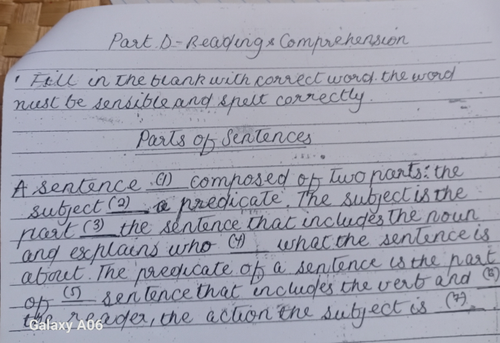 Part D - Reading & Comprehension
• Fill in the blank with correct word. the word
must be sensible and spelt correctly.
Parts of Sentences
A sentence (1) composed of two parts: the
subject (2) a predicate. The subject is the
part (3) the sentence that includes the noun
and explains who (4) what the sentence is
about. The predicate of a sentence is the part
of (5) sentence that includes the verb and (6)
the reader, the action the subject is (7)
Galaxy A06